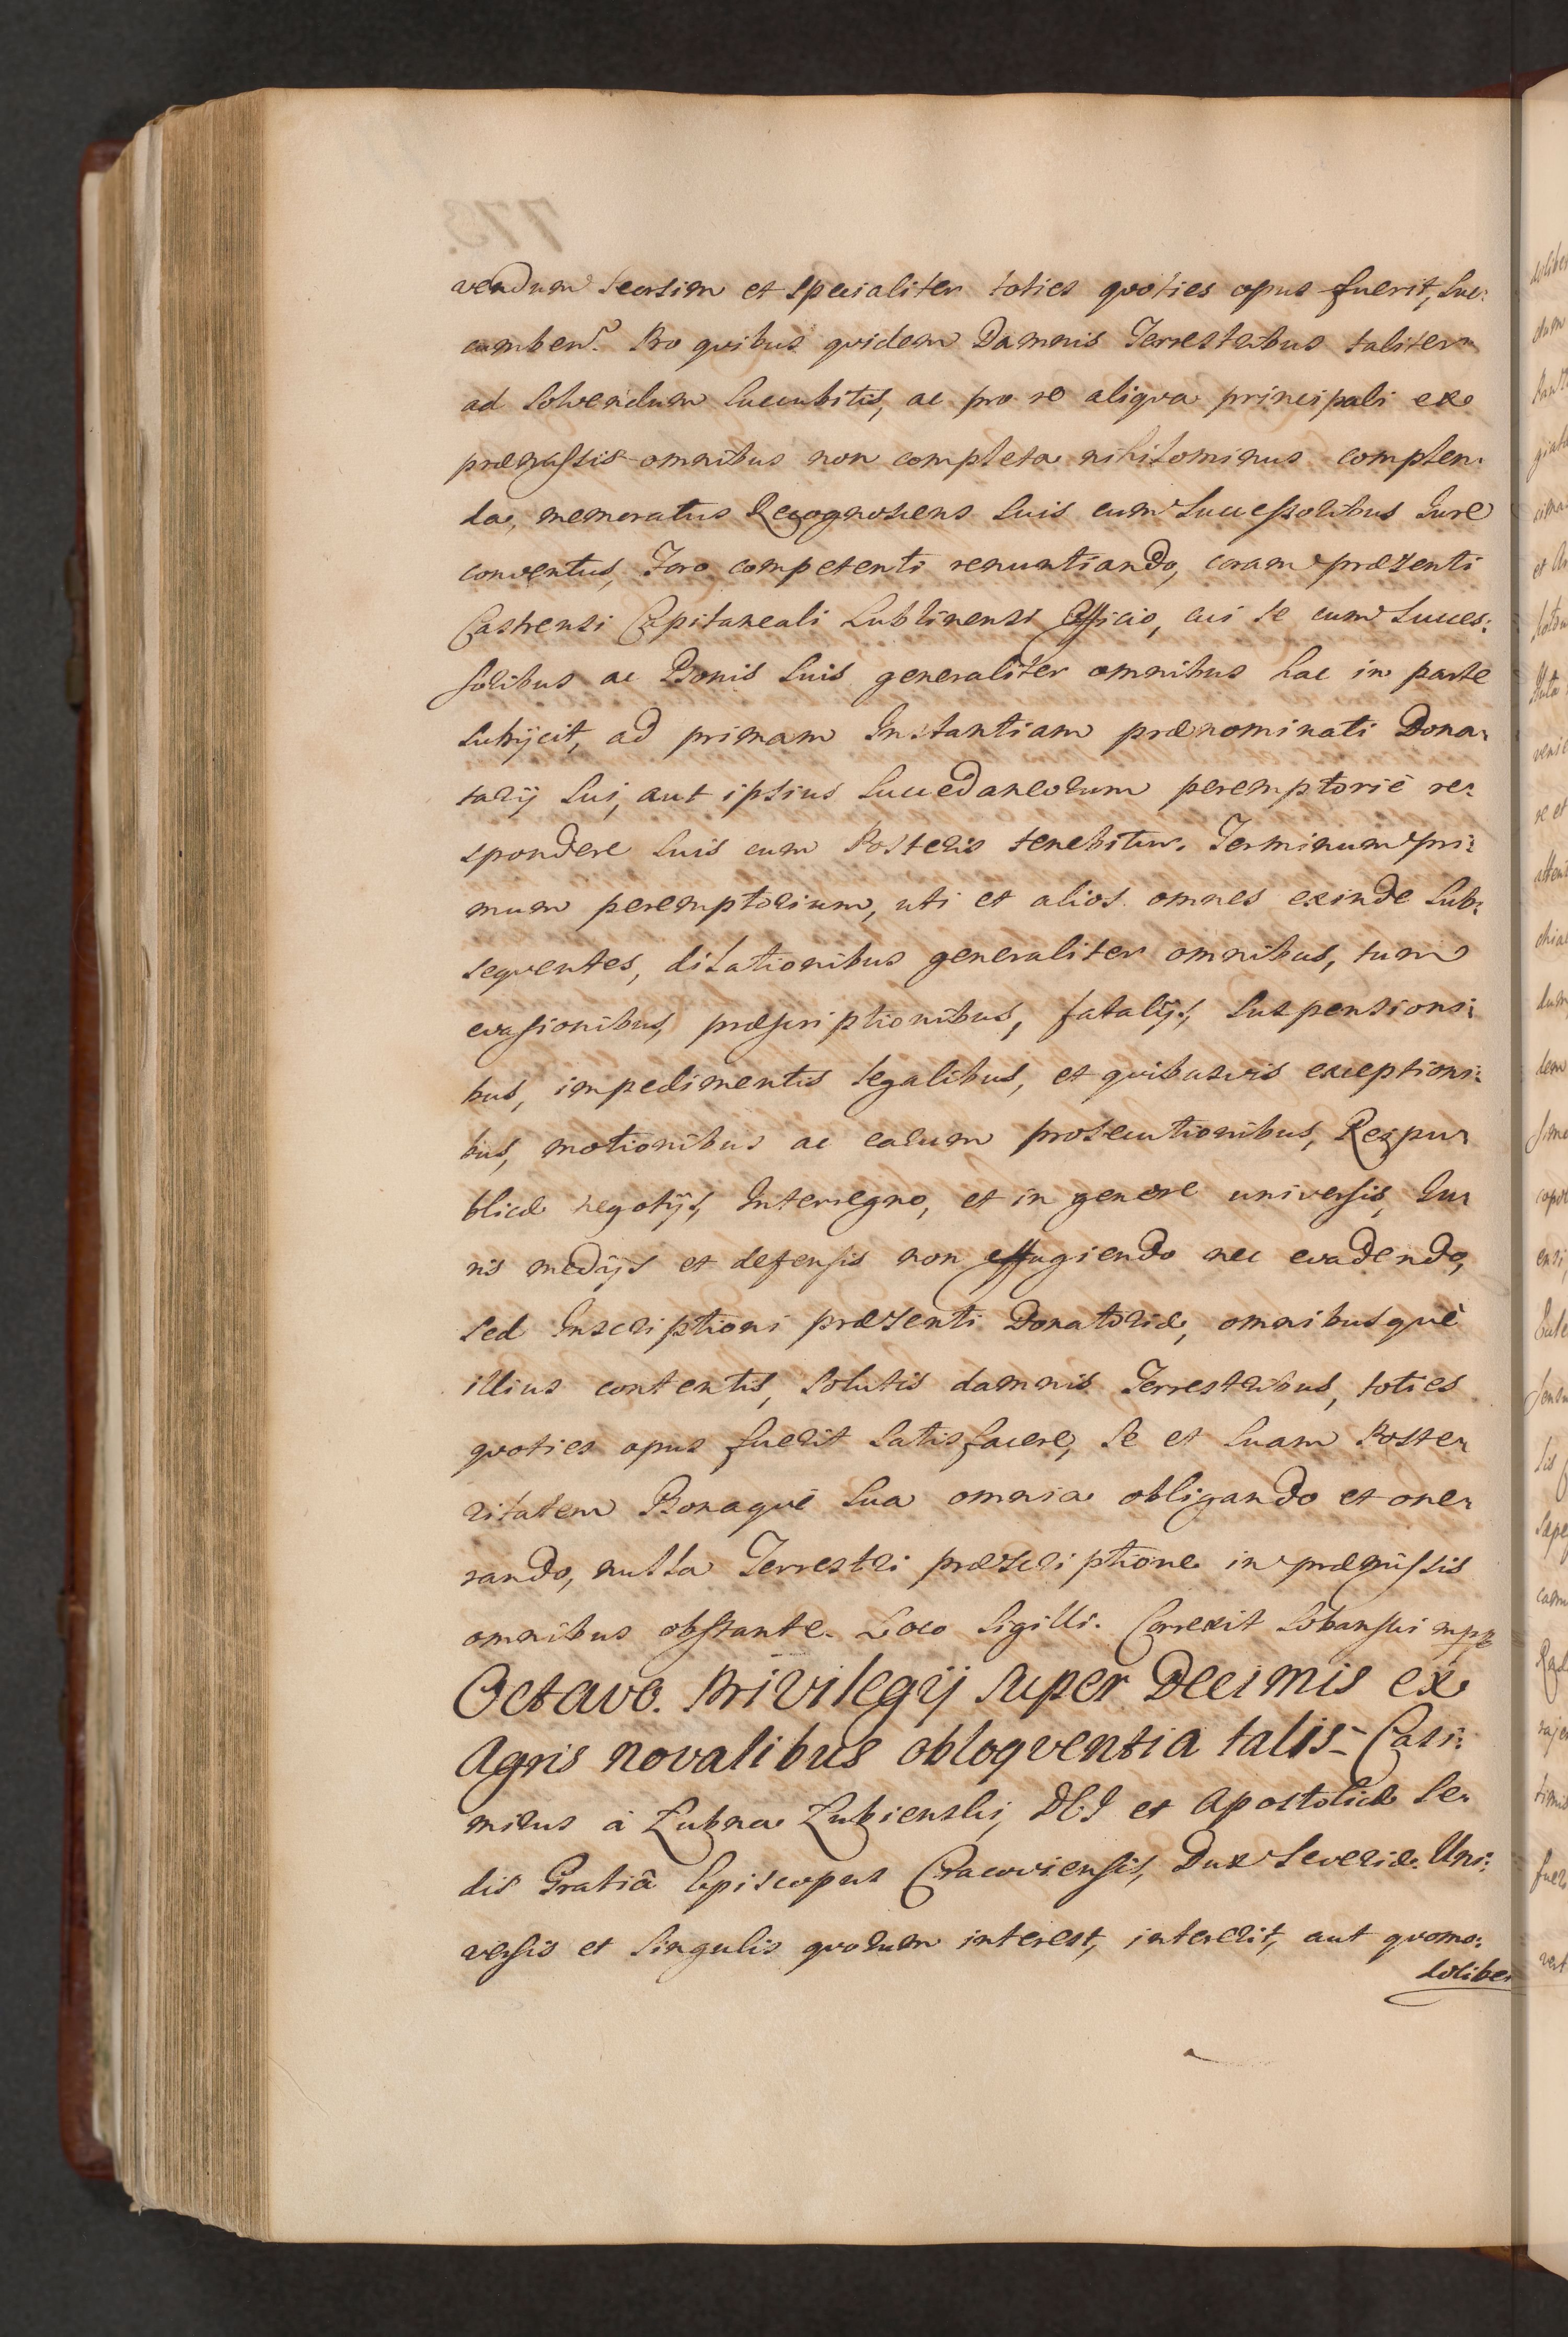 vendum seorsim et specialiter toties quoties opus fuerit, suc:
cumben? Pro quibus quidem Damnis Terrestribus taliter
ad solvendum succubitis, ac pro re aliqva principali ex
præmissis omnibus non completa nihilominus complen:
da, memoratus Recognoscens suis cum Successoribus Iure
conventus, Foro competenti renuntiando, coram præsenti
Castrensi Capitaneali Lublinensi Officio, cui se cum Succes:
soribus ac Bonis suis generaliter omnibus hac in parte
subijcit, ad primam Instantiam prænominati Dona:
tarij sui, aut ipsius Succedaneorum peremptorie re:
spondere suis cum Posteris tenebitur. Terminum pri:
mum peremptorium, uti et alios omnes exinde sub:
seqventes, dilationibus generaliter omnibus, tum
evasionibus, præscriptionibus, fatalijs, suspensioni:
bus, impedimentis legalibus, et qvibusvis exceptioni:
bus, motionibus ac earum prosecutionibus, Reipu:
blicæ negotijs, Interregno, et in genere universis, Iu:
ris medijs et defensis non effugiendo nec evadendo,
sed Inscriptioni præsenti Donatoriæ, omnibusqvè
illius contentis, solutis damnis Terrestribus, toties
qvoties opus fuerit satisfacere, se et suam Poste:
ritatem Bonaqvè sua omnia obligando et one:
rando, nulla Terrestri præscriptione in præmissis
omnibus obstante. Loco Sigilli. Correxit Lobanski mpp
Octavo. Privilegij super Decimis ex
Agris novalibus obloqventia talis - Casi:
mirus à Łubna Łubienski, DEI et Apostolicæ Se:
dis Gratiâ Episcopus Cracoviensis, Dux Severiæ. Uni:
versis et singulis qvorum interest, intererit, aut qvomo:
dolibet